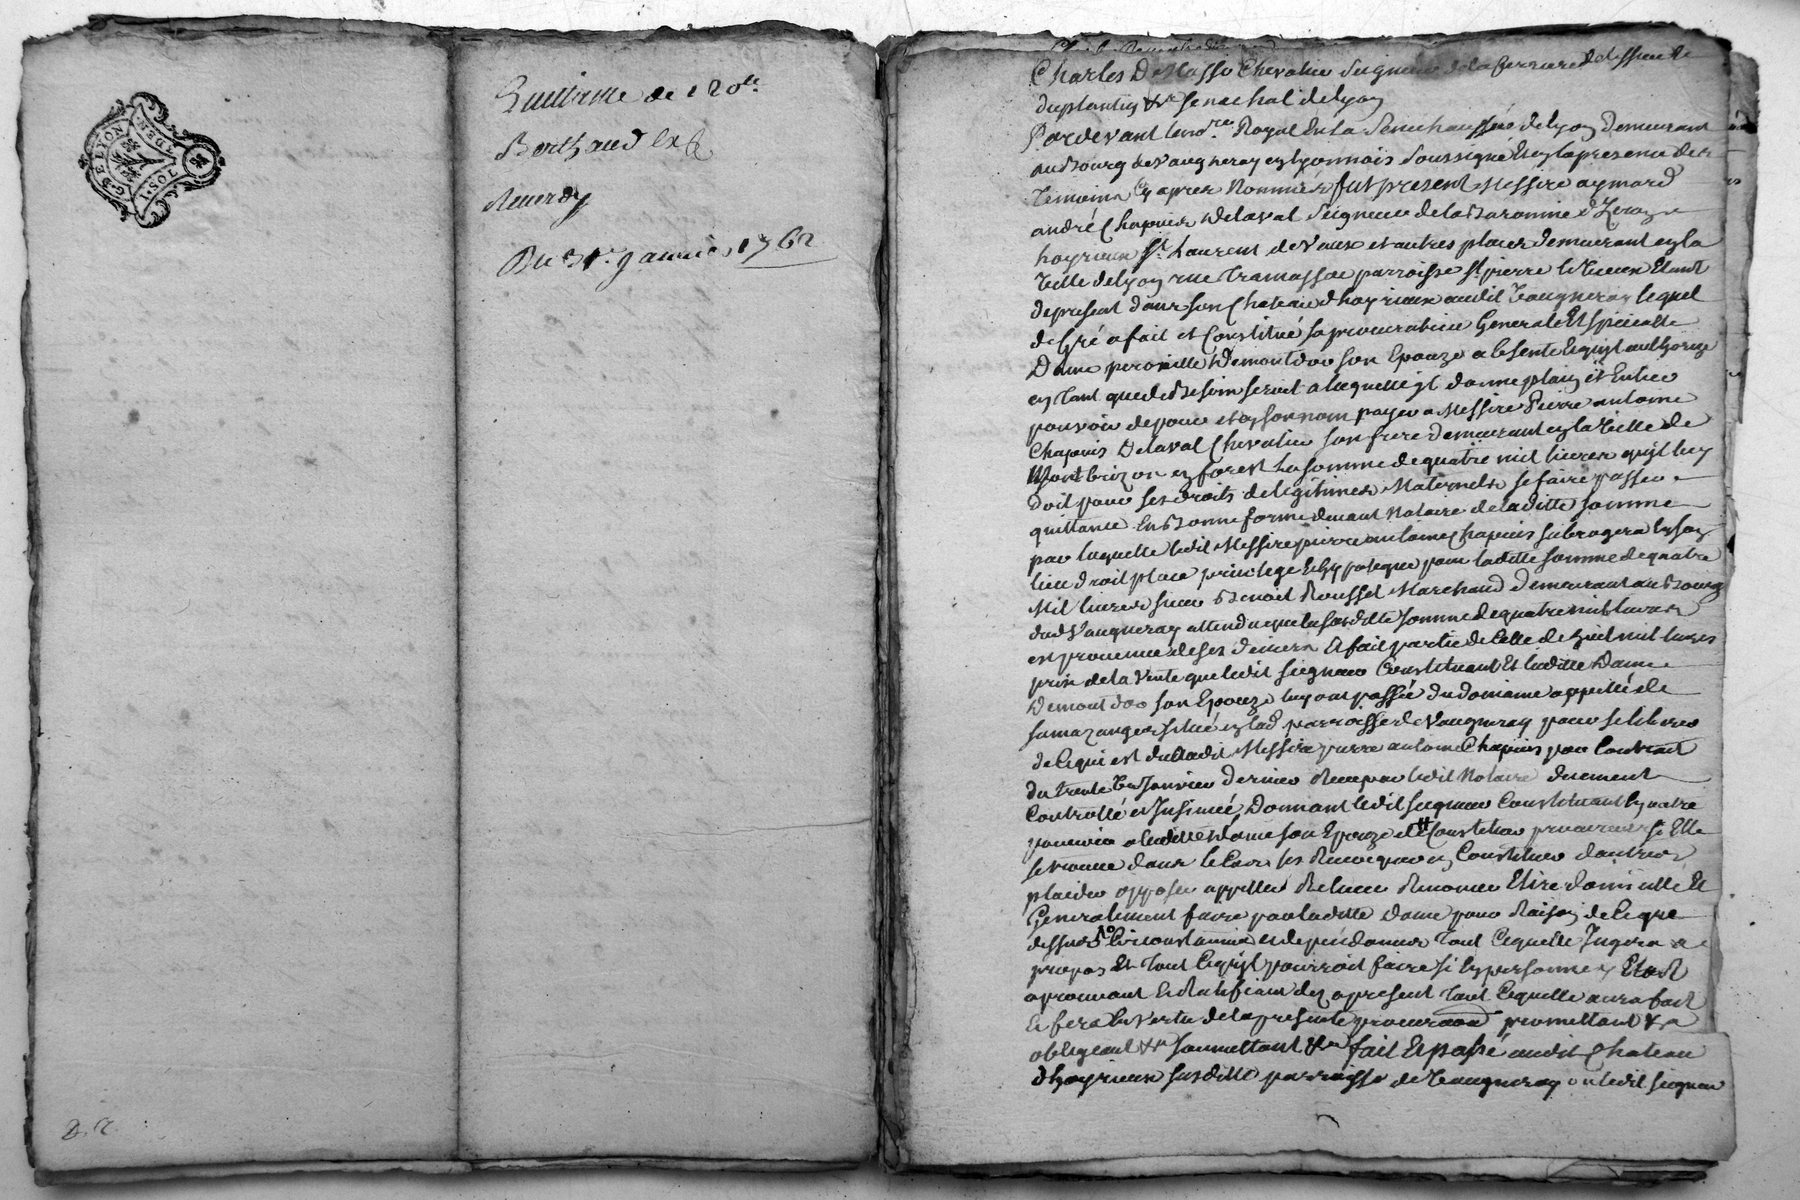 G. DE LYON
1. SOL
DEN.
Quittance de 120 lt.
Berthaud
Reverdy
Du 31e. janvier 1762
Charles De Masso Chevalier Seigneur de la ferriere de lissieu
du plantin &a senechal de lyon
Pardevant le nore. Royal En la Senechaussée de lyon demeurant
au Bourg de Vaugneray en lyonnois soussigné Et en la presence des
Temoins Cy apres Nommés fut present Messire aymard
andré Chapuis Delaval Seigneur de la Baronnie d'Izeron
hoyrieux st. Laurent de Vaux et autres places demeurant en la
Ville de lyon rue Tramassac parroisse st. pierre le Vieux Etant
de present dans son Chateau d'hoyrieux audit Vaugneray lequel
de Gré a fait et Constitué sa procuratrice Generale Et speciale
Dame peronille Demontdor son Epouze absente lequil authorize
en Tant que de Besoin seroit a laquelle il donne plain et Entier
pouvoir de pour et en son nom payer a Messire Pierre antoine
Chapuis Delaval Chevalier son frere demeurant en la Ville de
Montbrizon en forest la somme de quatre mil livres qu'il luy
doit pour ses droits de legitimes Maternels se faire passer
quittance En Bonne forme devant Notaire de laditte somme
par laquelle ledit Messire pierre antoine Chapuis subrogera En son
lieu droit place privilege Et hypoteque pour laditte somme de quatre
Mil livres sieur Benoit Rousset Marchand demeurant au Bourg
dud Vaugneray attendu que la susditte somme de quatre mil livres
est provenue de ses deniers Et fait partie de Celle de huit mil livres
prix de la Vente que ledit seigneur Constituant Et laditte Dame
Demontdor son Epouze luy ont passée du domaine appellé de
situé en lad parroisse de Vaugneray pour se liberer
de Ce qui est du audit Messire pierre antoine Chapuis par Contract
du trente Un Janvier dernier Receu par ledit Notaire duement
Controllé et Insinué Donnant ledit seigneur Constituant En outre
pouvoir a laditte Dame son Epouze de Constituer procureur si Elle
se trouve dans le Cas les Revoquer en Constituer d'autres
plaider opposer appeller Relever Renoncer Elire domicille Et
Generalement faire par laditte dame pour Raison de Ce que
dessus Circonstances et dependances tout Ce qu'elle Jugera a
propos Et Tout Ce qu'il pourroit faire si En personne y Etoit
aprouvant Et Ratifiant des a present tout Ce qu'elle aura fait
Et fera En Vertu de la presente procuraon promettant &a
obligeant &a soumettant &a fait Et passé audit Chateau
d'hoyrieux susditte parroisse de Vaugneray ou ledit seigneur